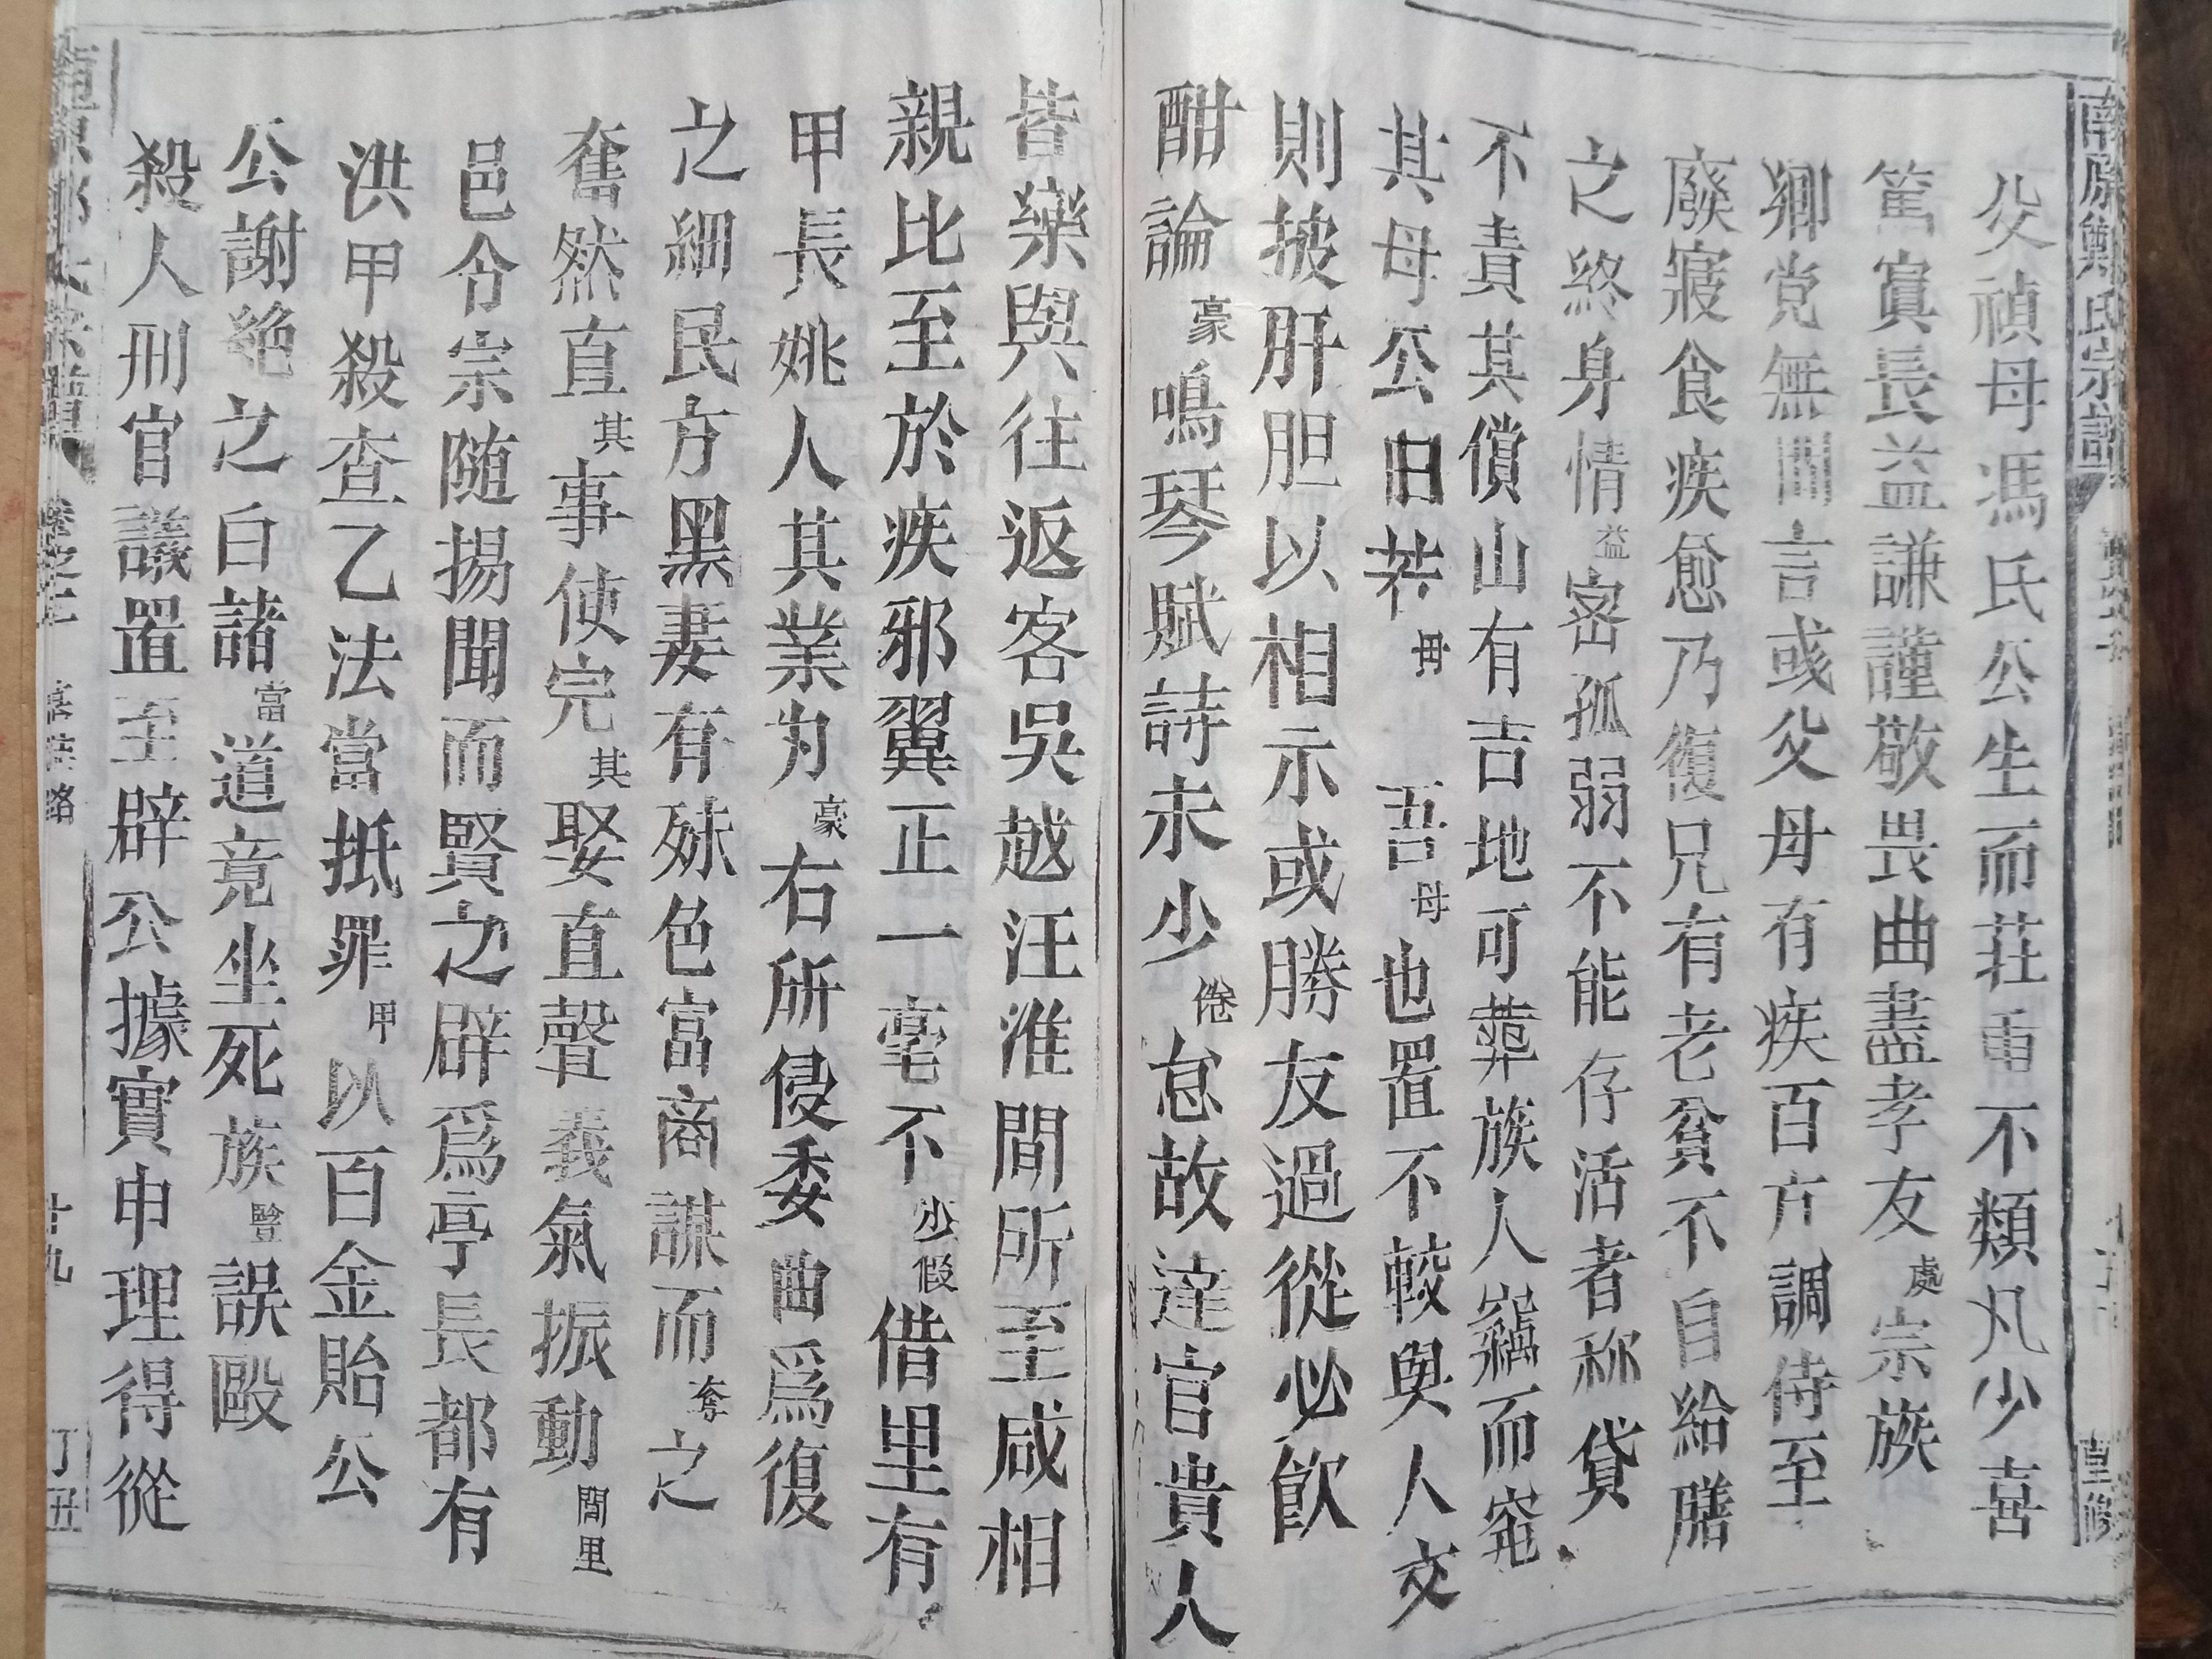 南原鄭氏宗譜
父禎母馮氏公生而莊重不類凡少喜
篤實長益謙謹敬畏曲盡孝友處宗族
鄉党無間言或父母有疾百方調侍至
廢寢食疾愈乃復兄有老貧不自給膳
之終身情益密孤弱不能存活者称貸
不責其償山有吉地可葬族人竊而窆
其母公曰若毋吾母也置不較與人交
則披肝胆以相示或勝友過從必飲
酣論豪鳴琴賦詩未少倦怠故達官貴人
皆樂與往返客吳越汪淮間所至咸相
親比至於疾邪翼正一毫不少假借里有
甲長姚人其業为豪右所侵委曲爲復
之細民方黑妻有殊色富商謀而奪之
奮然直其事使完其娶直聲義氣振動閭里
邑令宗随揚聞而賢之辟爲亭長都有
洪甲殺查乙法當抵罪甲以百金貽公
公謝絶之白諸當道竟坐死族豎誤毆
殺人刑官議置至辟公據實申理得從
廿九
丁丑